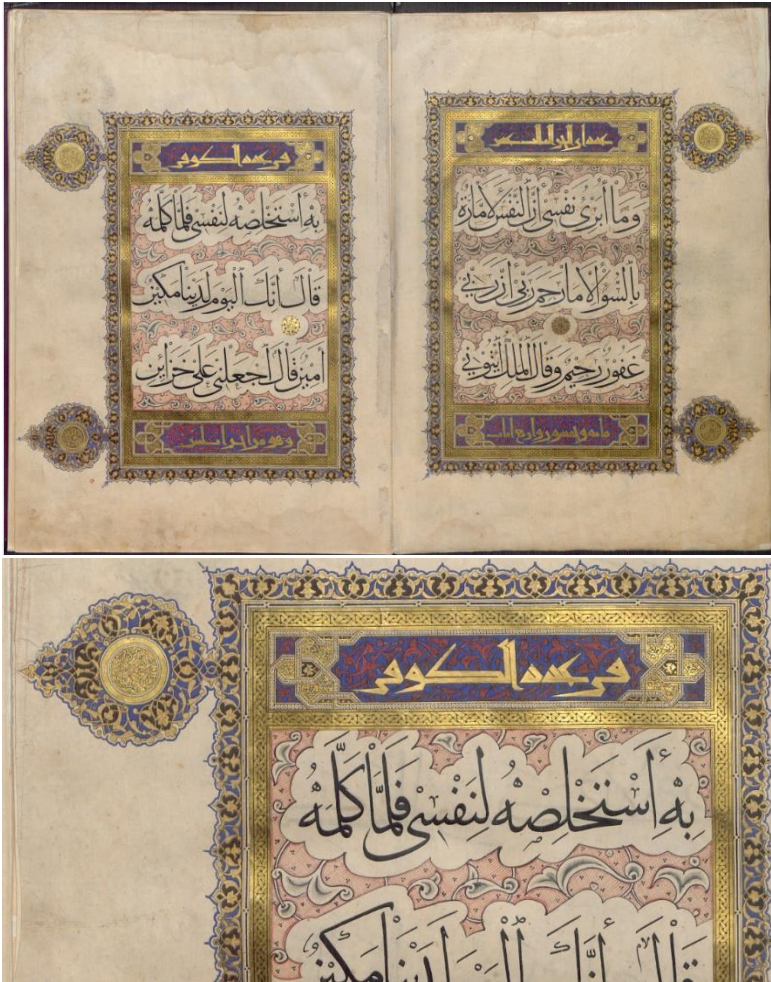 وَمَا أُبَرِّئُ نَفْسِي إِنَّ النَّفْسَ لَأَمَّارَةٌ
بِالسُّوءِ إِلَّا مَا رَحِمَ رَبِّي إِنَّ رَبِّي
غَفُورٌ رَحِيمٌ وَقَالَ الْمَلِكُ ائْتُونِي
في عدد الكوفي
بِهِ أَسْتَخْلِصْهُ لِنَفْسِي فَلَمَّا كَلَّمَهُ
قَالَ إِنَّكَ الْيَوْمَ لَدَيْنَا مَكِينٌ
أَمِينٌ قَالَ اجْعَلْنِي عَلَى خَزَائِنِ
في عدد الكوفي
بِهِ أَسْتَخْلِصْهُ لِنَفْسِي فَلَمَّا كَلَّمَهُ
قَالَ إِنَّكَ الْيَوْمَ لَدَيْنَا مَكِينٌ